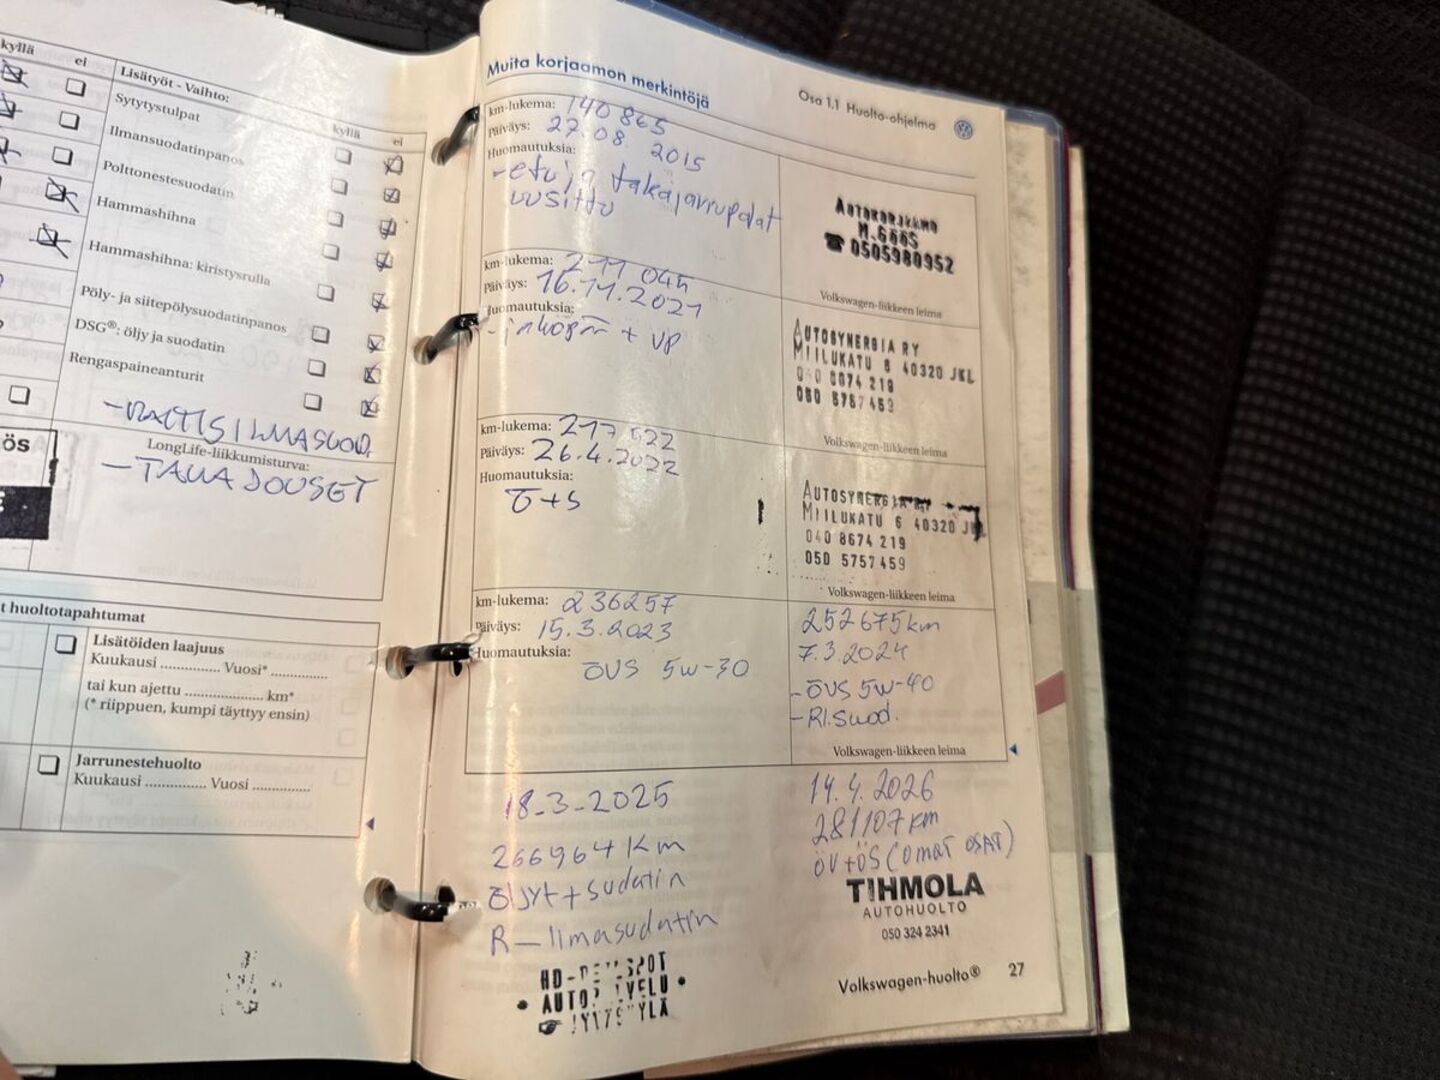 kyllä ei
Lisätyöt - Vaihto:
kyllä ei
Sytytystulpat
Ilmansuodatinpanos
Polttonestesuodatin
Hammashihna
Hammashihna: kiristysrulla
Pöly- ja siitepölysuodatinpanos
DSG®: öljy ja suodatin
Rengaspaineanturit
LongLife-liikkumisturva:
- TALLA DOUSET
ös
t huoltotapahtumat
Lisätöiden laajuus
Kuukausi .............. Vuosi* .............
tai kun ajettu .................. km*
(* riippuen, kumpi täyttyy ensin)
Jarrunestehuolto
Kuukausi .............. Vuosi .............
Muita korjaamon merkintöjä
Osa 1.1 Huolto-ohjelma
km-lukema: 140 865
Päiväys: 27.08. 2015
Huomautuksia:
- etu ja takajarrupalat
uusittu
AUTOKORJAAMO
M. 
☎ 0505980952
Volkswagen-liikkeen leima
km-lukema: 211 044
Päiväys: 16.11.2021
Huomautuksia:
AUTOSYNERGIA RY
MIILUKATU 6 40320 JKL
040 8674 219
050 5757459
Volkswagen-liikkeen leima
km-lukema: 217 522
Päiväys: 26.4.2022
Huomautuksia:
Ö+S
AUTOSYNERGIA RY
MIILUKATU 6 40320 JKL
040 8674 219
050 5757459
Volkswagen-liikkeen leima
km-lukema: 236257
Päiväys: 15.3.2023
Huomautuksia:
ÖVS 5W-30
252675km
7.3.2024
- ÖVS 5W-40
- RI.Suod.
Volkswagen-liikkeen leima
18-3-2025
266964 Km
Öljyt + sudatin
R-ilmasudatin
14.4.2026
281107 km
ÖV+ÖS (OMAT OSAT)
TIHMOLA
AUTOHUOLTO
050 324 2341
Volkswagen-huolto® 27